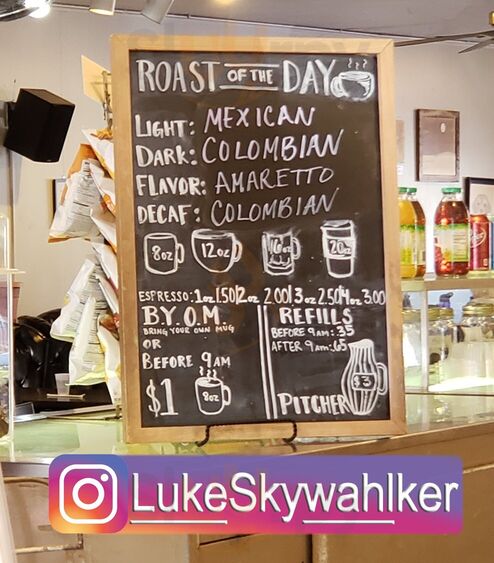 ROAST OF THE DAY
LIGHT: MEXICAN
DARK: COLOMBIAN
FLAVOR: AMARETTO
DECAF: COLOMBIAN
8oz 12oz 16oz 20oz
ESPRESSO: 1oz 1.50|2oz 2.00|3oz 2.50|4oz 3.00
B.Y.O.M.
BRING YOUR OWN MUG
OR
BEFORE 9AM
$1 8oz
REFILLS
BEFORE 9AM: .35
AFTER 9AM: .65
PITCHER $3
LukeSkywahlker